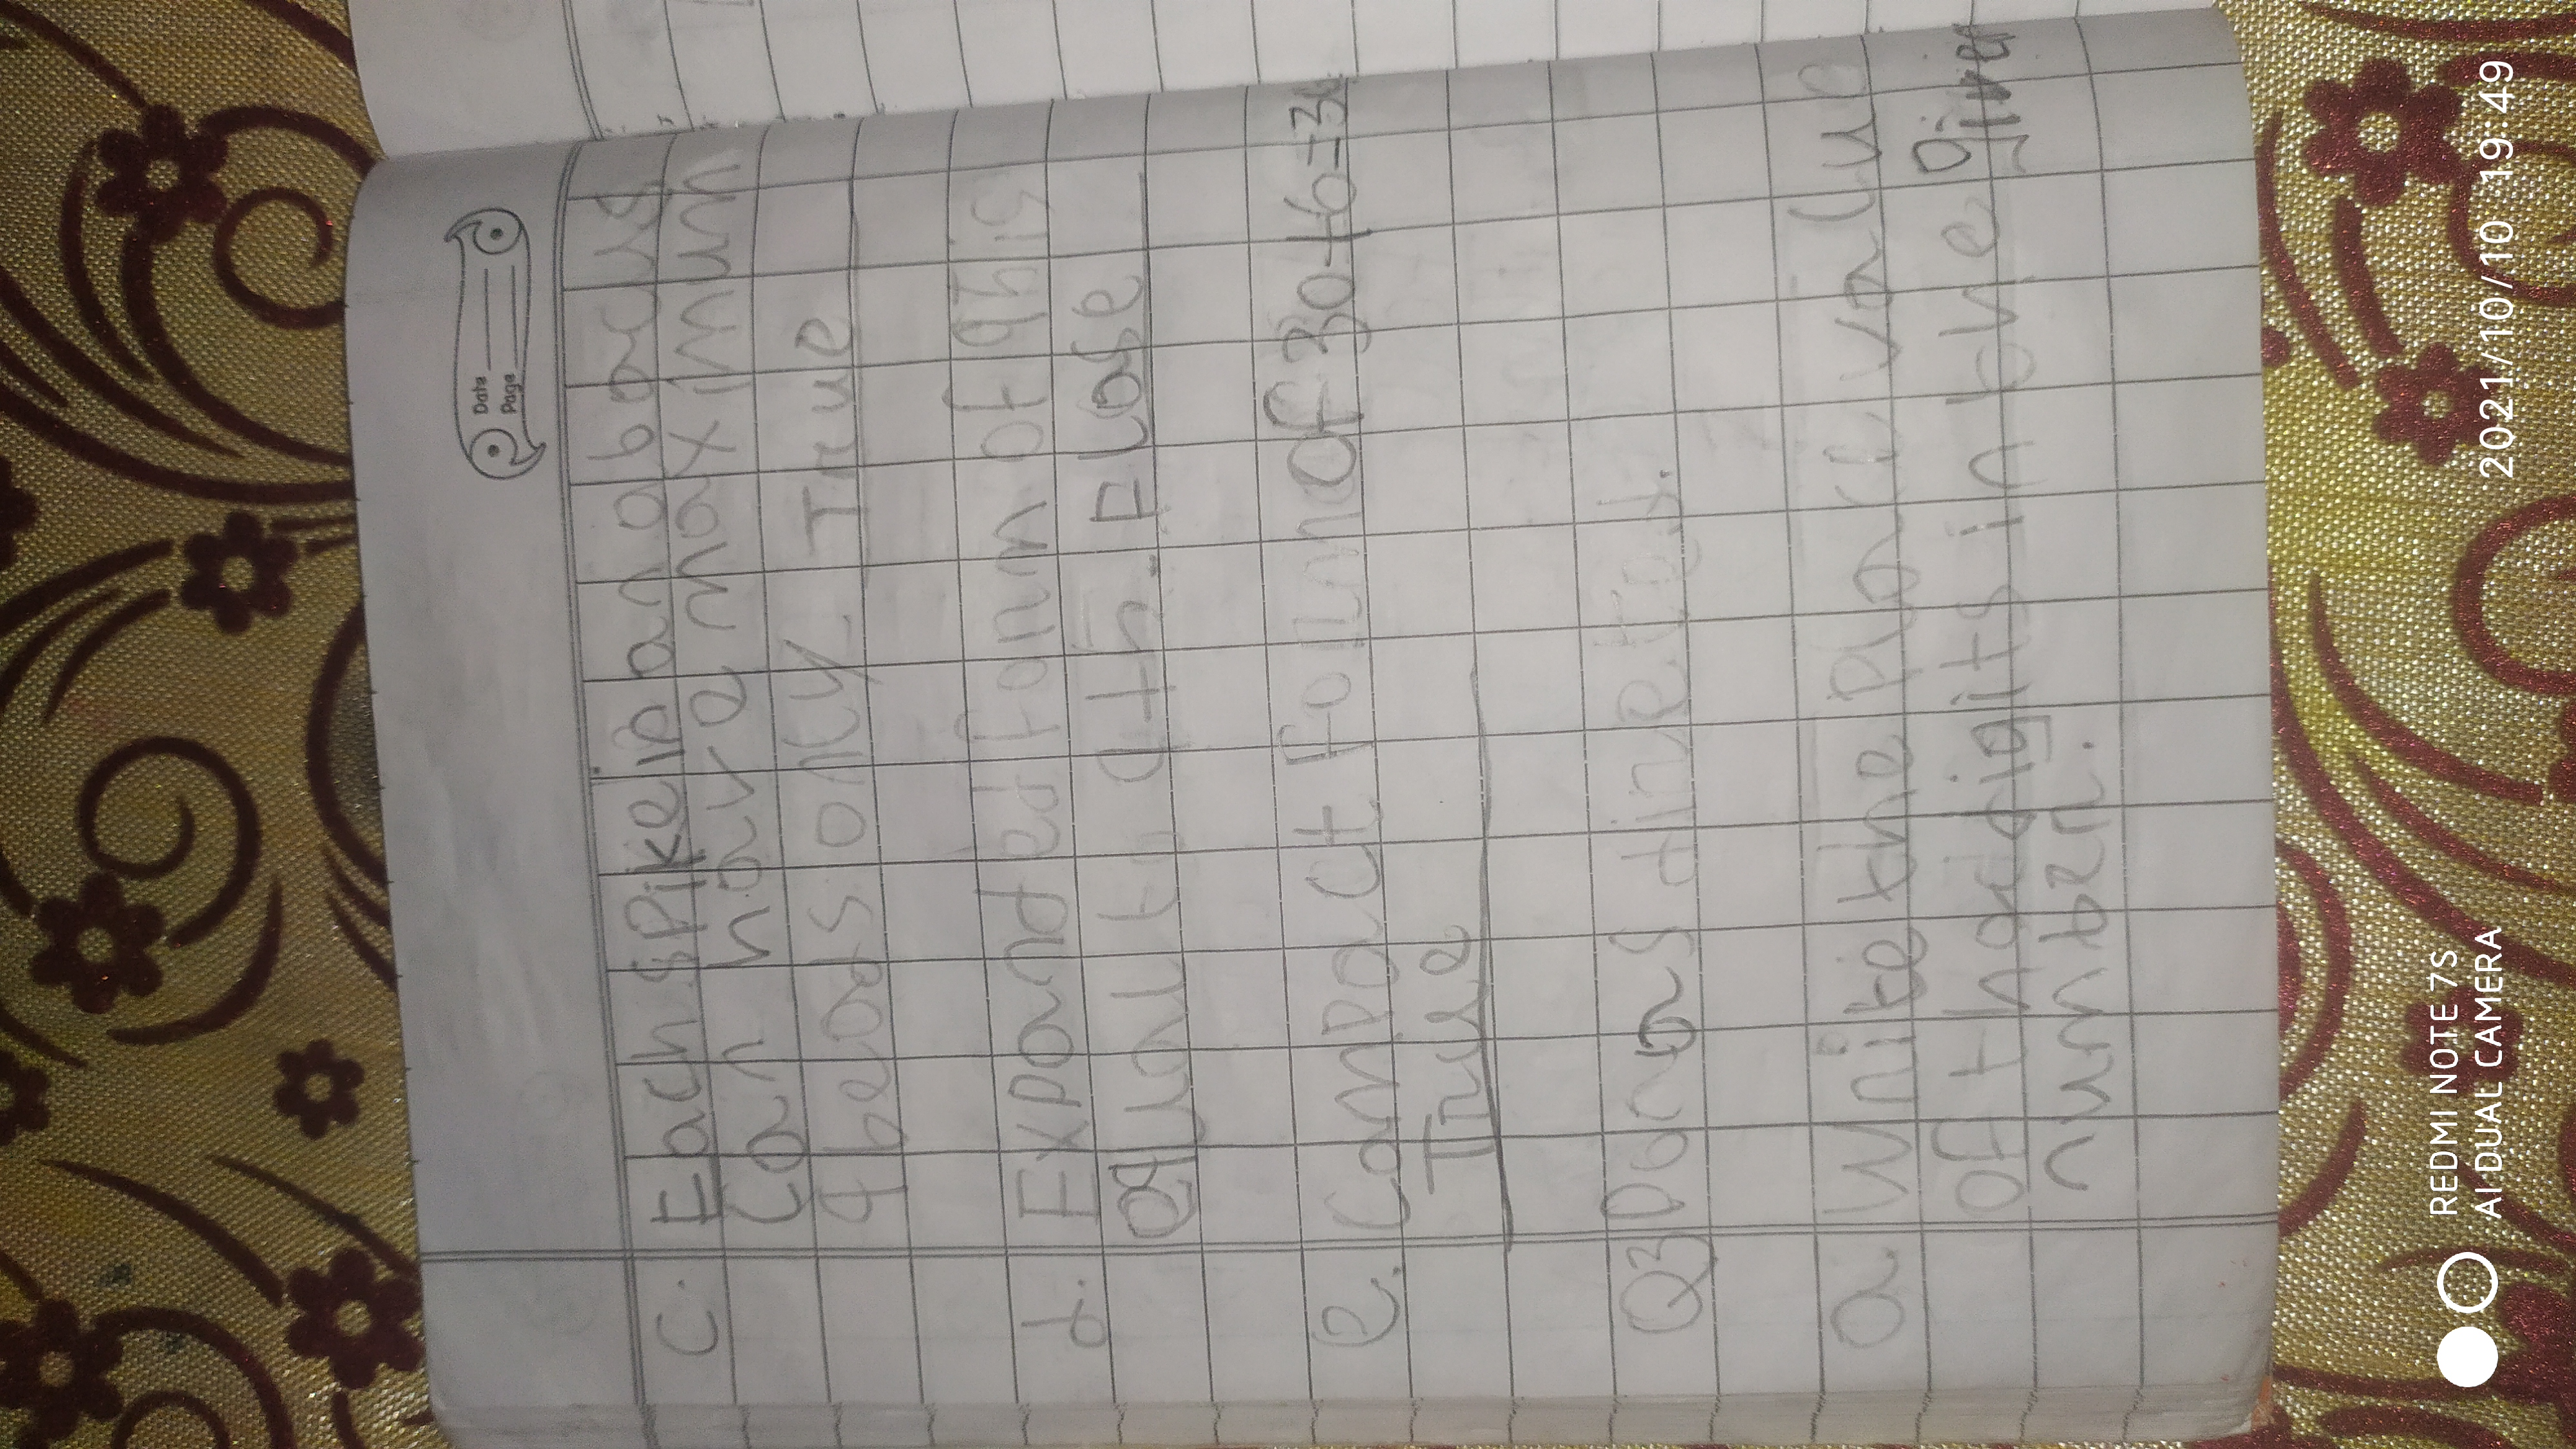 Date
Page
C. Each spike in an abacus
can have maximum
9 beads only. True
d. Expanded form of 9 is
equal to 9+n. Flase
e. Compact Form Of 30+6=36
True
Q3
a. Write the place value
of the digits in bve given
number.
REDMI NOTE 7S
AI DUAL CAMERA
2021/10/10 19:49